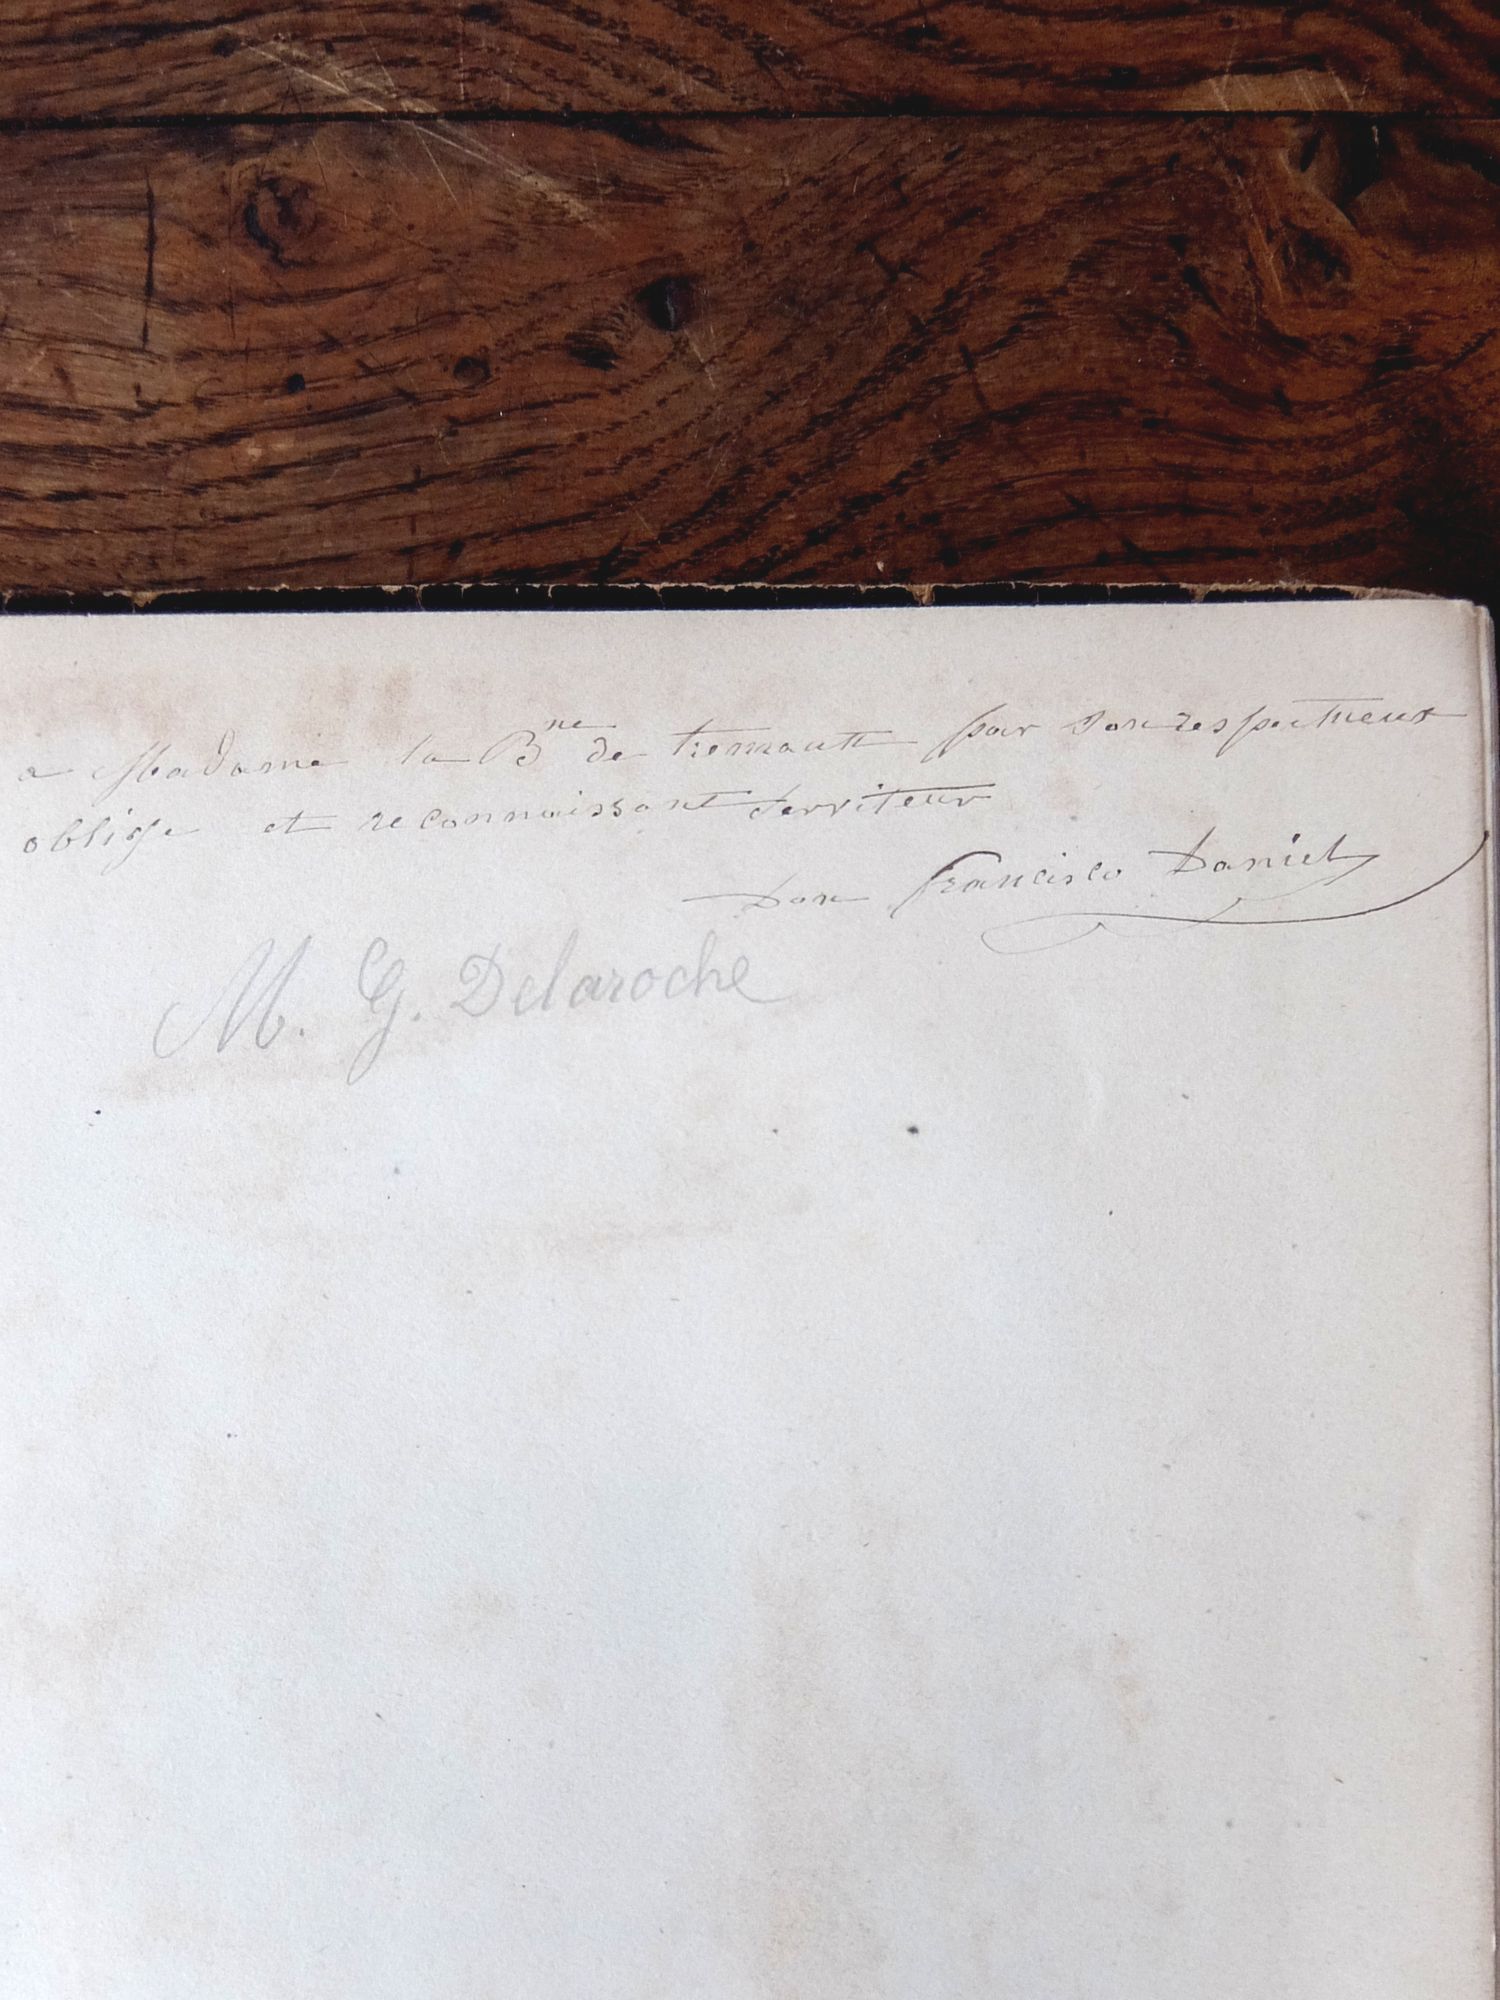 a Madame la Bne de tremault par son respectueux
oblige et reconnaissant serviteur
Don francisco Daniel
M. G. Delaroche